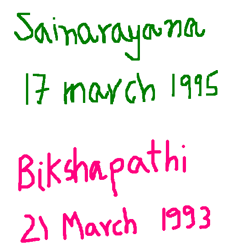 Sainarayana
17 march 1995
Bikshapathi
21 March 1993